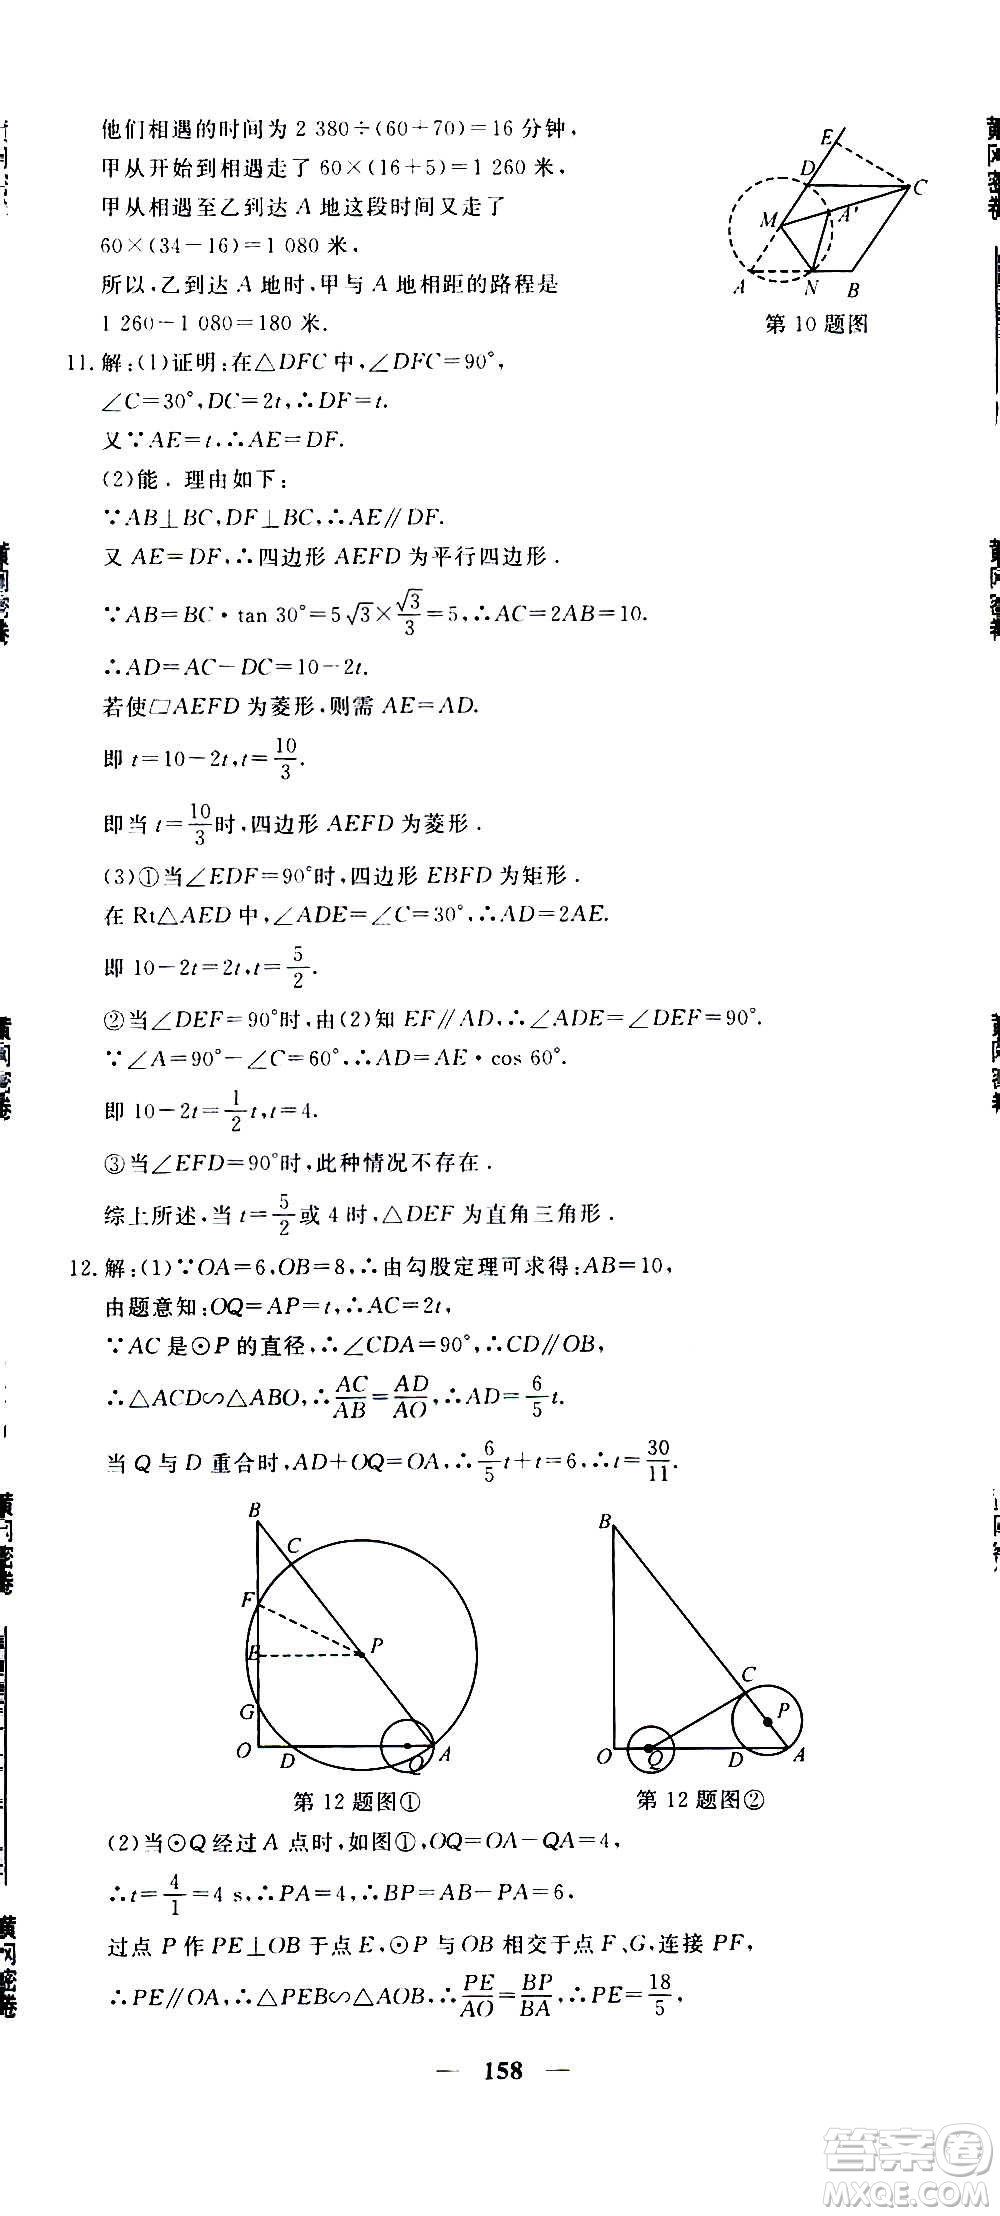 他们相遇的时间为 2 380÷(60+70)=16 分钟,
甲从开始到相遇走了 60×(16+5)=1 260 米,
甲从相遇至乙到达 A 地这段时间又走了
60×(34-16)=1 080 米,
所以,乙到达 A 地时,甲与 A 地相距的路程是
1 260-1 080=180 米.
E
D
C
M
A'
A
N
B
第 10 题图
11. 解:(1)证明:在△DFC 中,∠DFC=90°,
∠C=30°,DC=2t,∴DF=t.
又∵AE=t,∴AE=DF.
(2)能. 理由如下:
∵AB⊥BC,DF⊥BC,∴AE∥DF.
又 AE=DF,∴四边形 AEFD 为平行四边形.
∵AB=BC·tan 30°=5√3×√3/3=5,∴AC=2AB=10.
∴AD=AC-DC=10-2t.
若使▱AEFD 为菱形,则需 AE=AD.
即 t=10-2t,t=10/3.
即当 t=10/3时,四边形 AEFD 为菱形.
(3)①当∠EDF=90°时,四边形 EBFD 为矩形.
在 Rt△AED 中,∠ADE=∠C=30°,∴AD=2AE.
即 10-2t=2t,t=5/2.
②当∠DEF=90°时,由(2)知 EF∥AD,∴∠ADE=∠DEF=90°.
∵∠A=90°-∠C=60°,∴AD=AE·cos 60°.
即 10-2t=1/2t,t=4.
③当∠EFD=90°时,此种情况不存在.
综上所述,当 t=5/2或 4 时,△DEF 为直角三角形.
12. 解:(1)∵OA=6,OB=8,∴由勾股定理可求得:AB=10,
由题意知:OQ=AP=t,∴AC=2t,
∵AC 是⊙P 的直径,∴∠CDA=90°,∴CD∥OB,
∴△ACD∽△ABO,∴AC/AB=AD/AO,∴AD=6/5t.
当 Q 与 D 重合时,AD+OQ=OA,∴6/5t+t=6,∴t=30/11.
B
C
F
B
P
G
O
D
Q
A
第 12 题图①
B
C
P
O
Q
D
A
第 12 题图②
(2)当⊙Q 经过 A 点时,如图①,OQ=OA-QA=4,
∴t=4/1=4 s,∴PA=4,∴BP=AB-PA=6.
过点 P 作 PE⊥OB 于点 E,⊙P 与 OB 相交于点 F、G,连接 PF,
∴PE∥OA,∴△PEB∽△AOB,∴PE/AO=BP/BA,∴PE=18/5,
— 158 —
答案卷
MXQE.COM